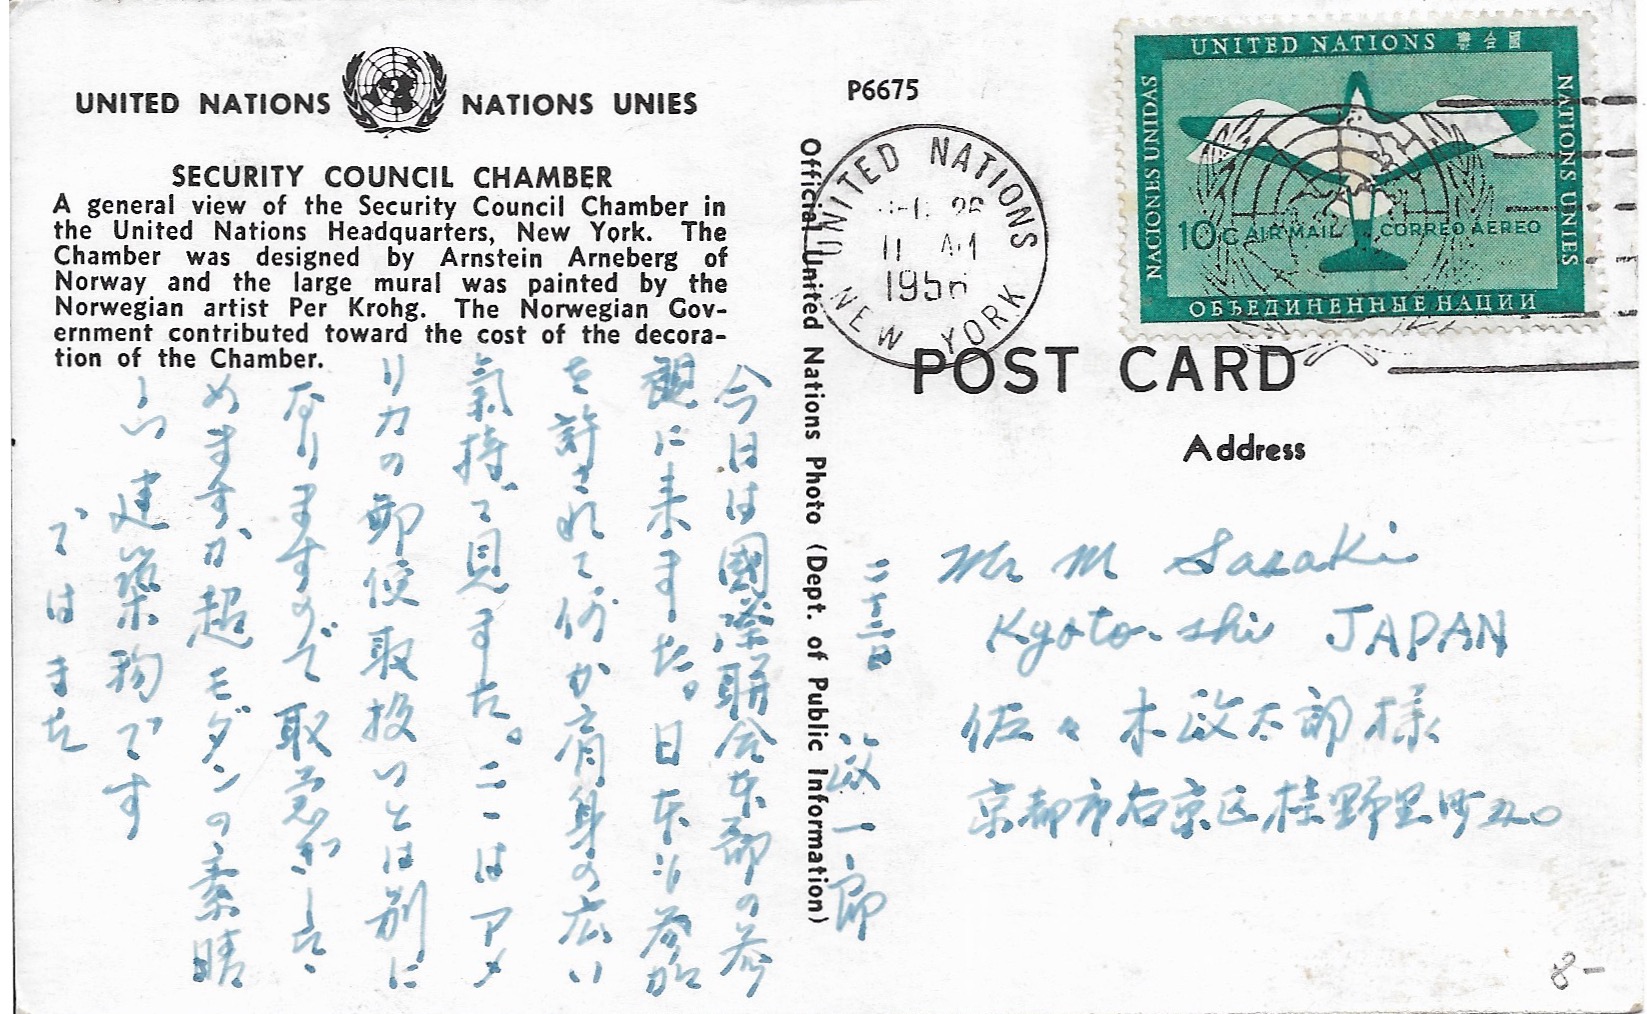 UNITED NATIONS NATIONS UNIES
SECURITY COUNCIL CHAMBER
A general view of the Security Council Chamber in
the United Nations Headquarters, New York. The
Chamber was designed by Arnstein Arneberg of
Norway and the large mural was painted by the
Norwegian artist Per Krohg. The Norwegian Gov-
ernment contributed toward the cost of the decora-
tion of the Chamber.
今日は國際聯合本部の参
観に来ました。日本も参加
を許されて何か肩身の広い
氣持で見ました。ここはアメ
リカの郵便取扱いとは別に
なりますので取急ぎしたゝ
めますが超モダンの素晴
しい建築物です
ではまた
二十三日 政一郎
Official United Nations Photo (Dept. of Public Information)
P6675
UNITED NATIONS
11 AM
195
NEW YORK
UNITED NATIONS 聯合國
NACIONES UNIDAS
NATIONS UNIES
10c AIR MAIL CORREO AEREO
ОБЪЕДИНЕННЫЕ НАЦИИ
POST CARD
Address
Mr M Sasaki
Kyoto-shi JAPAN
佐々木政太郎様
京都市右京区桂野里町
8-